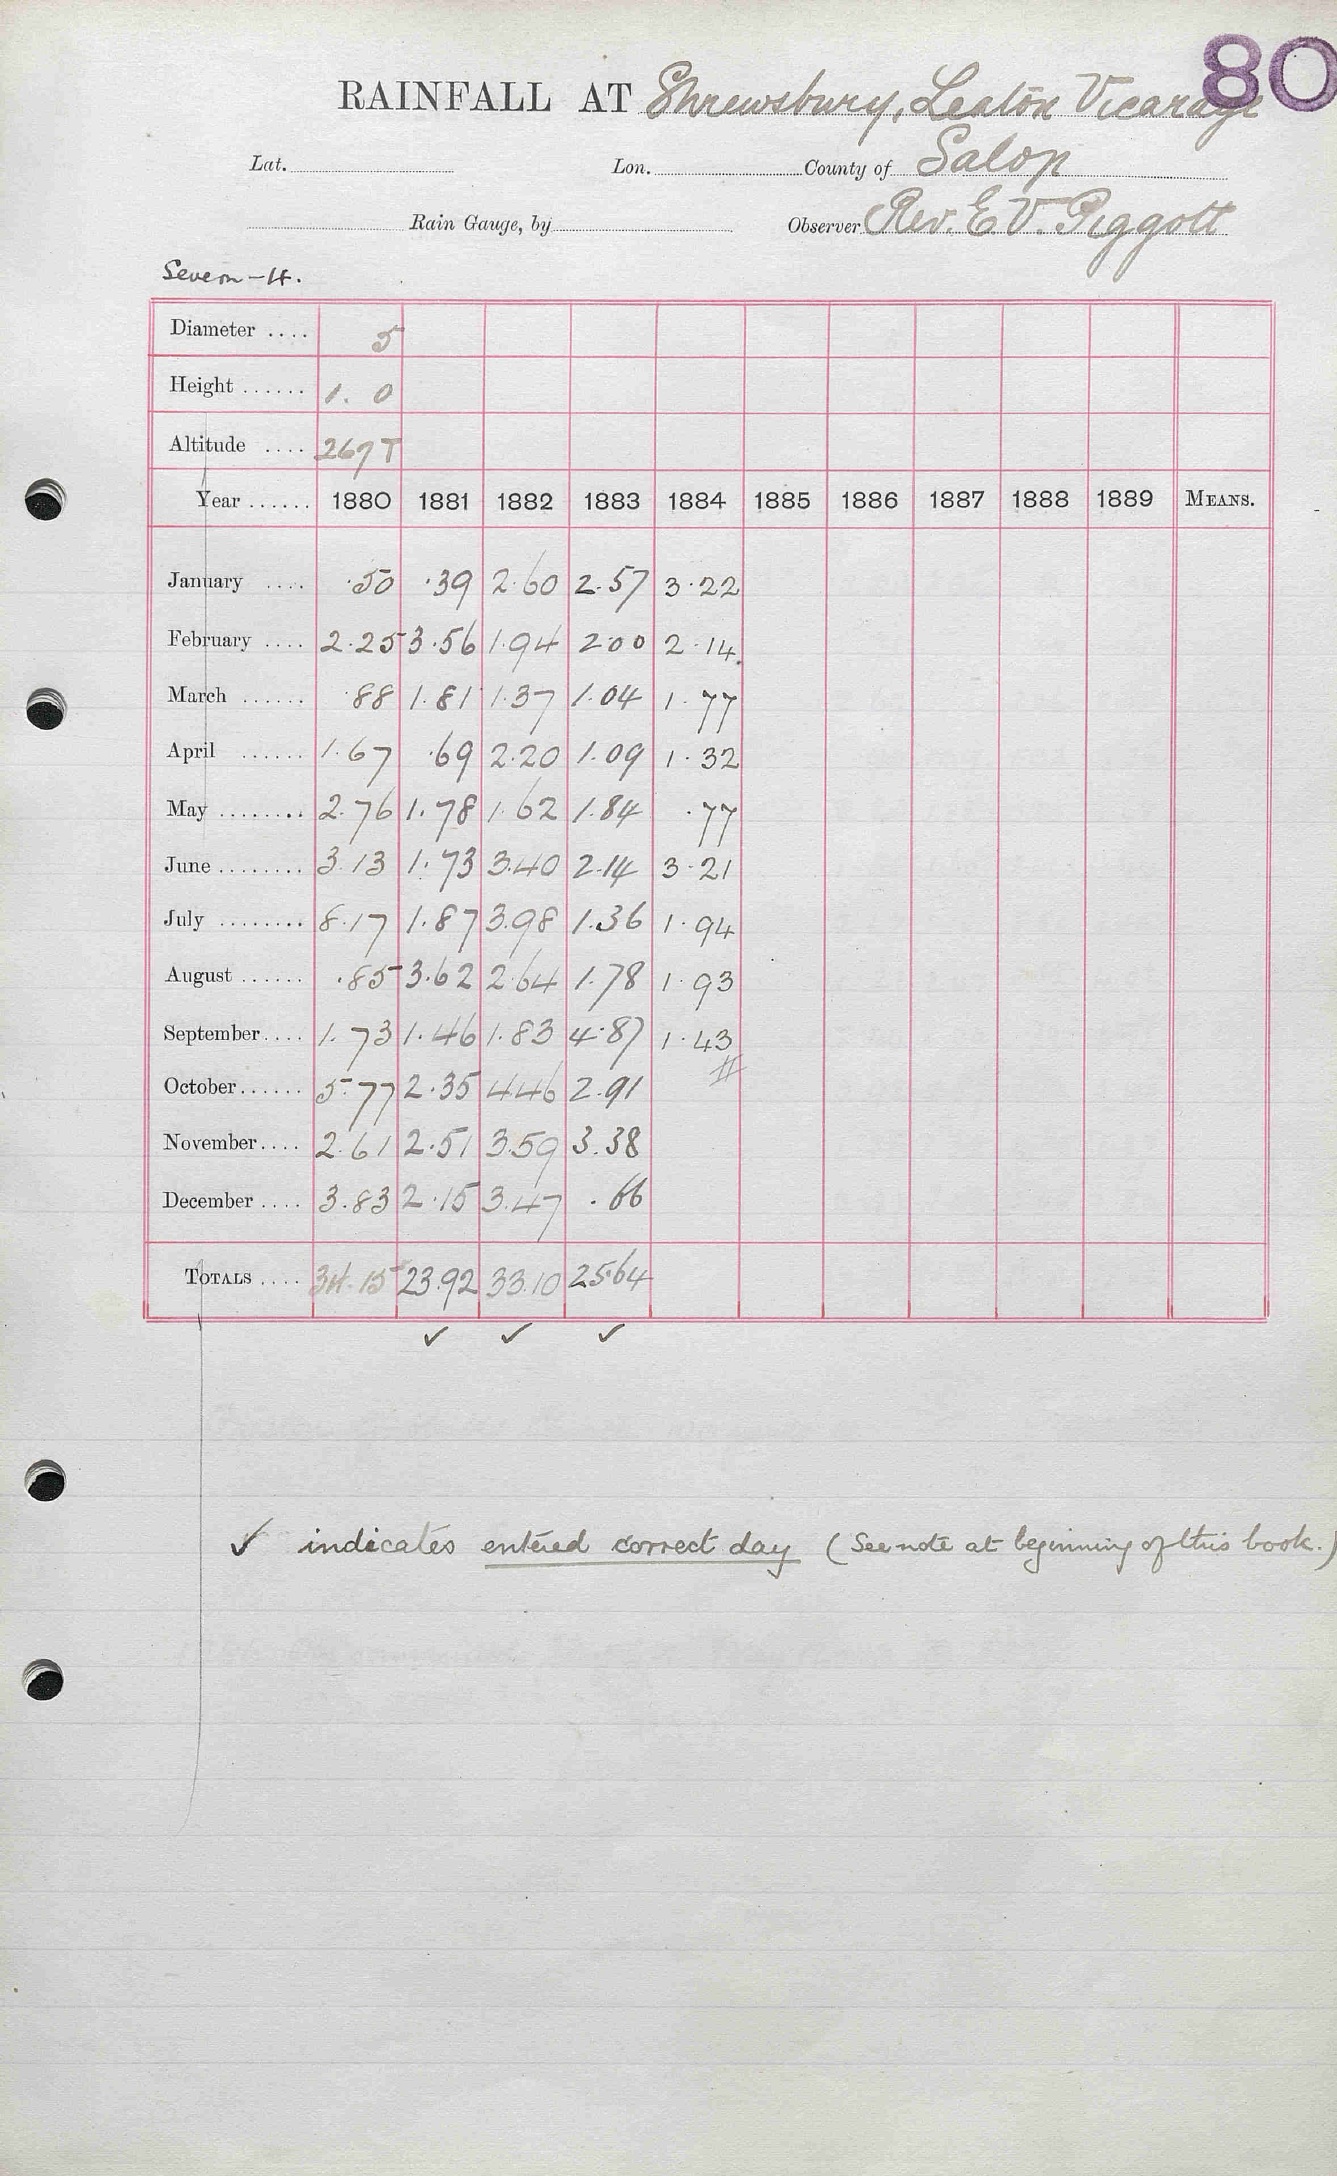 80
RAINFALL AT Shrewsbury, Leaton Vicarage
Lat. Lon. County of Salop
Rain Gauge, by Observer Rev. E. V. Piggott
Severn - 4.
Diameter .... 5
Height ...... 1. 0
Altitude .... 267 T
Year ...... 1880 1881 1882 1883 1884 1885 1886 1887 1888 1889 MEANS.
January .... .50 .39 2.60 2.57 3.22
February .... 2.25 3.56 1.94 2.00 2.14
March ...... .88 1.81 1.37 1.04 1.77
April ...... 1.67 .69 2.20 1.09 1.32
May ........ 2.76 1.78 1.62 1.84 .77
June ........ 3.13 1.73 3.40 2.14 3.21
July ........ 8.17 1.87 3.98 1.36 1.94
August ...... .85 3.62 2.64 1.78 1.93
September .... 1.73 1.46 1.83 4.87 1.43
October ...... 5.77 2.35 4.46 2.91
November .... 2.61 2.51 3.59 3.38
December .... 3.83 2.15 3.47 .66
TOTALS .... 34.15 23.92 33.10 25.64
✓ ✓ ✓
✓ indicates entered correct day (See note at beginning of this book.)